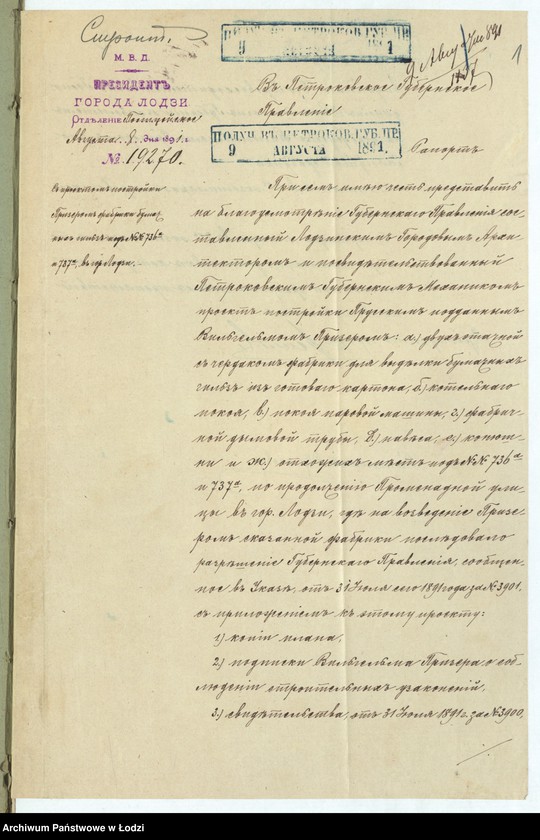 Строит.
М. В. Д.
ПРЕЗИДЕНТЪ
ГОРОДА ЛОДЗИ.
Отдѣленіе Полицейское
Августа 8 дня 1891 г.
№ 19270.
съ проектомъ постройки
Призеромъ фабрики бумаж-
ныхъ гильзъ подъ №№ 736а
и 737а, въ гор. Лодзи.
ПОЛУЧ. ВЪ ПЕТРОКОВ. ГУБ. ПР.
9 АВГУСТА 1891
9 Авг. 1891
1
Въ Петроковское Губернское
Правленіе
ПОЛУЧ. ВЪ ПЕТРОКОВ. ГУБ. ПР.
9 АВГУСТА 1891.
Рапортъ
При семъ имѣю честь представить
на благоусмотрѣніе Губернскаго Правленія сос-
тавленный Лодзинскимъ Городовымъ Архи-
текторомъ и посвидѣтельствованный
Петроковскимъ Губернскимъ Механикомъ
проектъ постройки Прусскимъ подданнымъ
Вильгельмомъ Призеромъ: а) двухъэтажной
съ чердакомъ фабрики для выдѣлки бумажныхъ
гильзъ изъ готоваго картона, б) котельнаго
покоя, в) покоя паровой машины, г) фабрич-
ной дымовой трубы, д) навѣса, е) конюш-
ни и ж) отхожихъ мѣстъ подъ №№ 736а
и 737а, по продолженію Променадной ули-
цы въ гор. Лодзи, гдѣ на возведеніе Призе-
ромъ сказанной фабрики послѣдовало
разрѣшеніе Губернскаго Правленія, сообщен-
ное въ Указѣ, отъ 31 Іюля сего 1891 года за № 3901,
съ приложеніемъ къ этому проекту:
1) копіи плана,
2) подписки Вильгельма Призера о соб-
людении строительныхъ узаконеній,
3) свидѣтельства, отъ 31 Іюля 1891 г. за № 3900,
Archiwum Państwowe w Łodzi